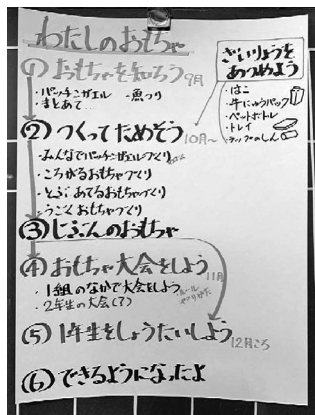 わたしのおもちゃ
① おもちゃを知ろう 9月
・パッチンガエル ・魚つり
・まとあて…
ざいりょうを
あつめよう
・はこ
・牛にゅうパック
・ペットボトル
・トレイ
・ラップのしん
② つくってためそう 10月～
・みんなでパッチンガエルづくり
・ころがるおもちゃづくり
・とぶ あてるおもちゃづくり
・うごくおもちゃづくり
③ じぶんのおもちゃ
④ おもちゃ大会をしよう 11月
・1組のなかで大会をしよう
・ルール
やりかた
・2年生の大会(?)
⑤ 1年生をしょうたいしよう 12月ころ
⑥ できるようになったよ